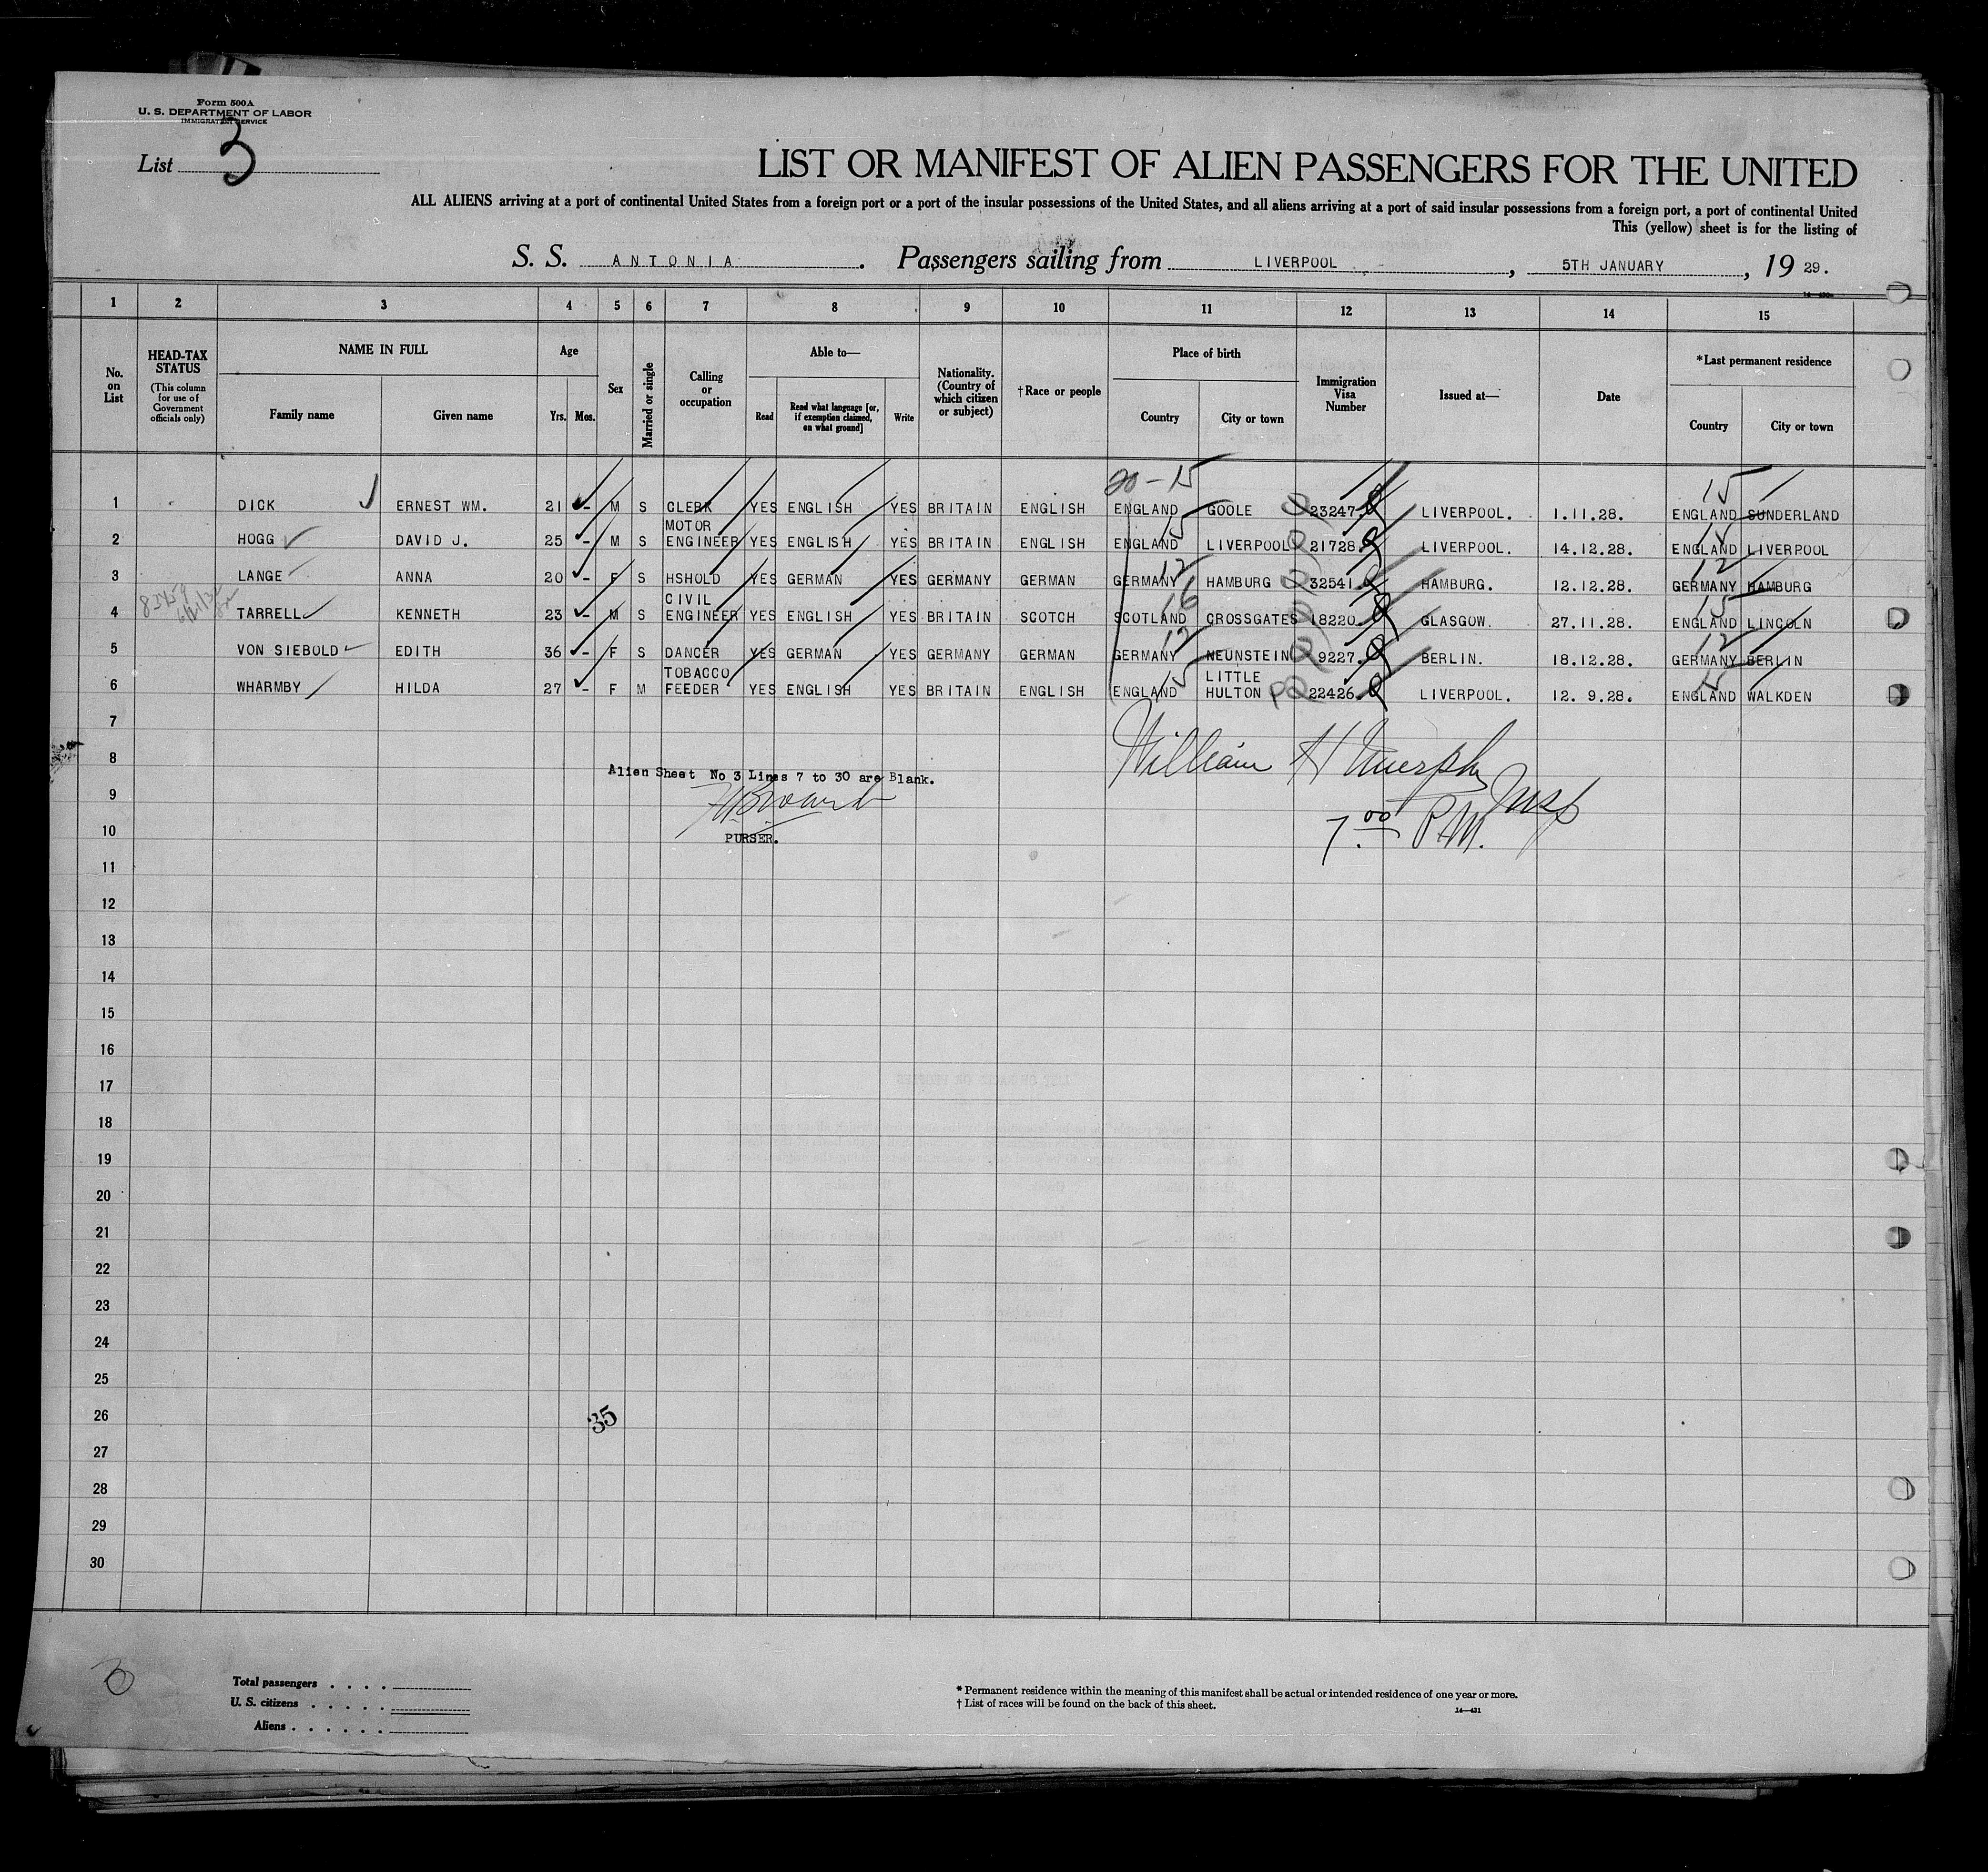 Form 500A
U. S. DEPARTMENT OF LABOR
IMMIGRATION SERVICE
List 3
LIST OR MANIFEST OF ALIEN PASSENGERS FOR THE UNITED
ALL ALIENS arriving at a port of continental United States from a foreign port or a port of the insular possessions of the United States, and all aliens arriving at a port of said insular possessions from a foreign port, a port of continental United
This (yellow) sheet is for the listing of
S. S. ANTONIA. Passengers sailing from LIVERPOOL, 5TH JANUARY, 19 29.
1 2 3 4 5 6 7 8 9 10 11 12 13 14 15
No. on List
HEAD-TAX STATUS
(This column for use of Government officials only)
NAME IN FULL
Family name
Given name
Age
Yrs. Mos.
Sex
Married or single
Calling or occupation
Able to—
Read
Read what language [or, if exemption claimed, on what ground]
Write
Nationality. (Country of which citizen or subject)
† Race or people
Place of birth
Country
City or town
Immigration Visa Number
Issued at—
Date
*Last permanent residence
Country
City or town
20-15 15
1 DICK ERNEST WM. 21 - M S CLERK YES ENGLISH YES BRITAIN ENGLISH ENGLAND GOOLE 23247 LIVERPOOL. 1.11.28. ENGLAND SUNDERLAND
2 HOGG DAVID J. 25 - M S MOTOR ENGINEER YES ENGLISH YES BRITAIN ENGLISH ENGLAND LIVERPOOL 21728 LIVERPOOL. 14.12.28. ENGLAND LIVERPOOL
3 LANGE ANNA 20 - F S HSHOLD YES GERMAN YES GERMANY GERMAN GERMANY HAMBURG 32541 HAMBURG. 12.12.28. GERMANY HAMBURG
4 TARRELL KENNETH 23 - M S CIVIL ENGINEER YES ENGLISH YES BRITAIN SCOTCH SCOTLAND CROSSGATES 18220 GLASGOW. 27.11.28. ENGLAND LINCOLN
5 VON SIEBOLD EDITH 36 - F S DANCER YES GERMAN YES GERMANY GERMAN GERMANY NEUNSTEIN 9227. BERLIN. 18.12.28. GERMANY BERLIN
6 WHARMBY HILDA 27 - F M TOBACCO FEEDER YES ENGLISH YES BRITAIN ENGLISH ENGLAND LITTLE HULTON 22426 LIVERPOOL. 12. 9.28. ENGLAND WALKDEN
7
8
Alien Sheet No 3 Lines 7 to 30 are Blank.
William H Murphy Insp
9
7.00 P.M.
10
PURSER.
11
12
13
14
15
16
17
18
19
20
21
22
23
24
25
26
35
27
28
29
30
Total passengers . . . .
U. S. citizens . . . . .
Aliens . . . . . .
* Permanent residence within the meaning of this manifest shall be actual or intended residence of one year or more.
† List of races will be found on the back of this sheet.
14—431